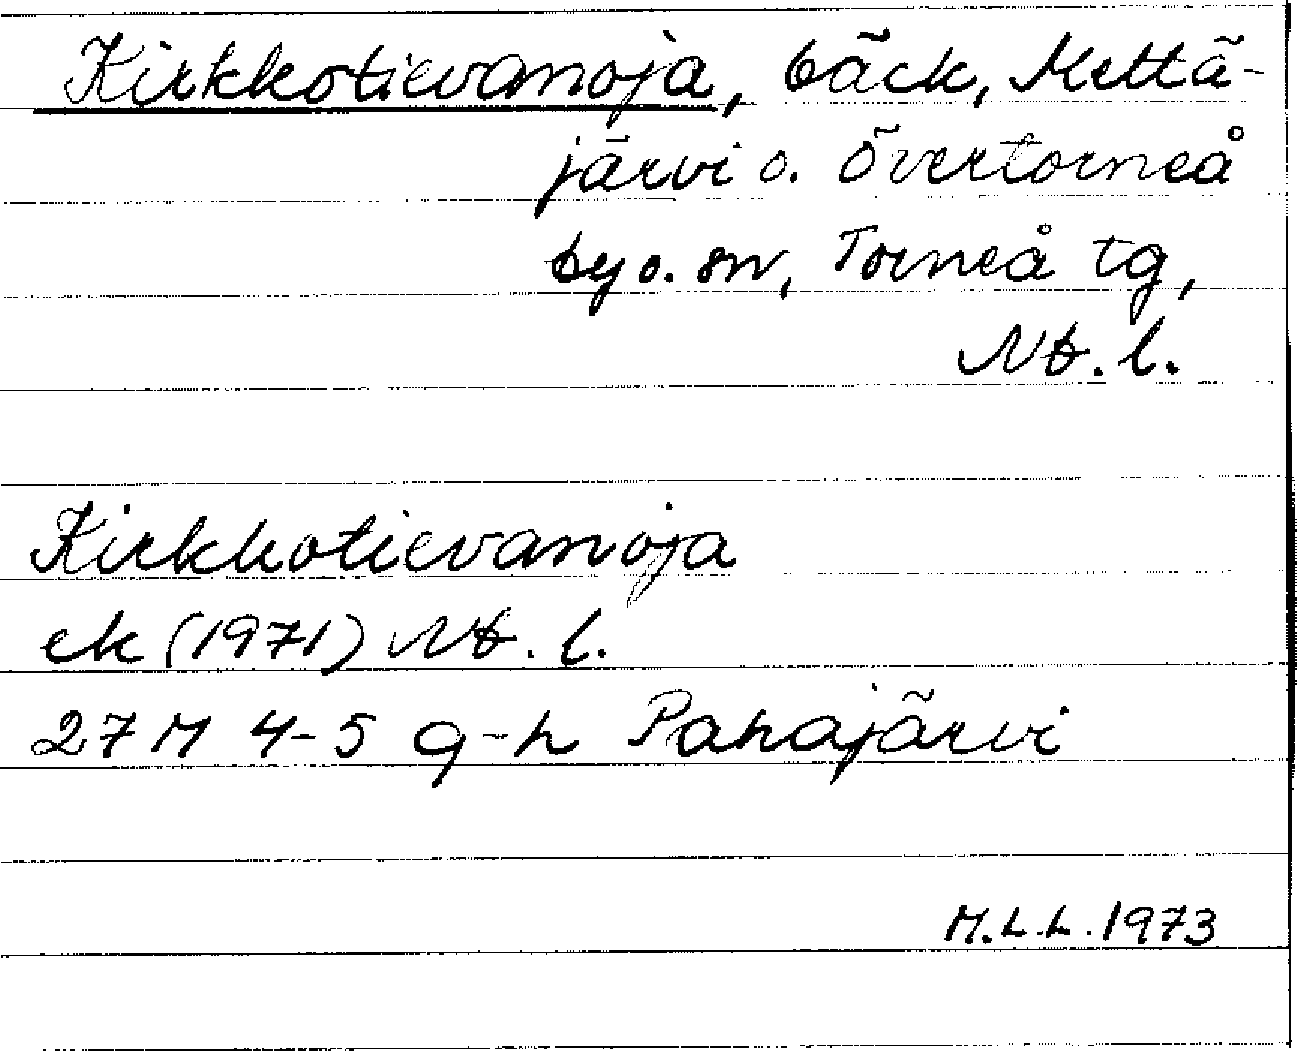 Kirkkotievanoja, bäck, Mettä-
järvi o. Övertorneå
by o. sn, Torneå tg,
Nb. l.
Kirkkotievanoja
ek (1971) Nb. l.
27 M 4-5 g-h Pahajärvi
M.L.L. 1973